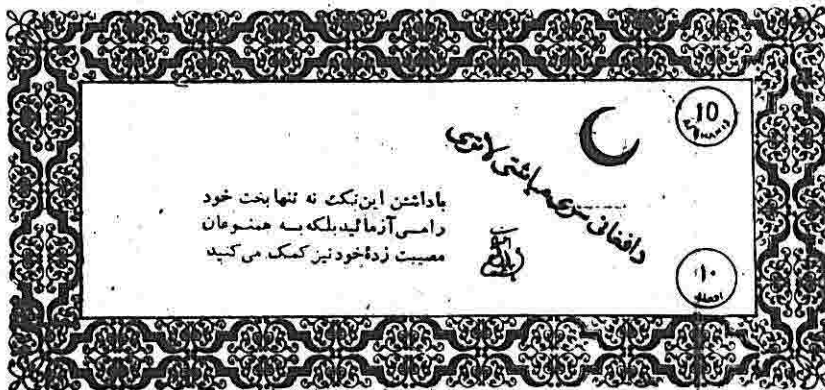 10
AFGHANIS
دافغانی سری میاشتی لاتری
باداشتن این تکت نه تنها بخت خود
رامی آزمائید بلکه به همنوعان
مصیبت زدهٔ خود نیز کمک می کنید
۱۰
افغانی